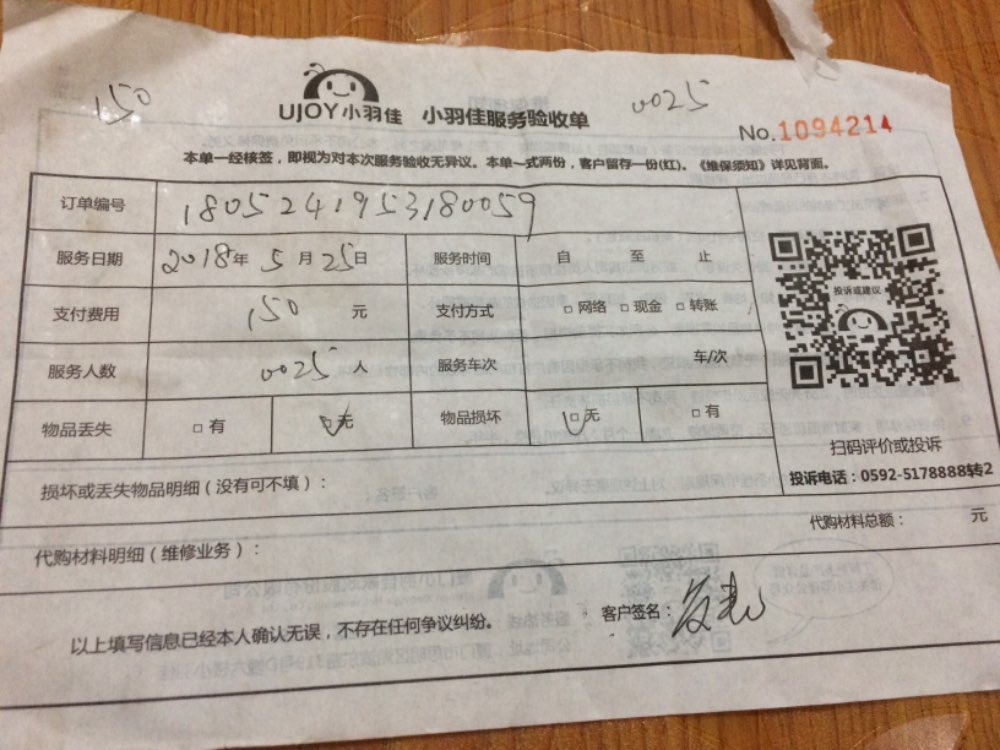 150
0025
UJOY小羽佳 小羽佳服务验收单
No.1094214
本单一经核签，即视为对本次服务验收无异议。本单一式两份，客户留存一份(红)。《维保须知》详见背面。
订单编号 1805241953180059
服务日期 2018年 5月 25日 服务时间 自 至 止
投诉或建议
支付费用 150 元 支付方式 □ 网络 □ 现金 □ 转账
服务人数 0025 人 服务车次 车/次
物品丢失 □ 有 □ 无 物品损坏 □ 无 □ 有
扫码评价或投诉
投诉电话：0592-5178888转2
损坏或丢失物品明细（没有可不填）：
代购材料明细（维修业务）： 代购材料总额： 元
以上填写信息已经本人确认无误，不存在任何争议纠纷。 客户签名：